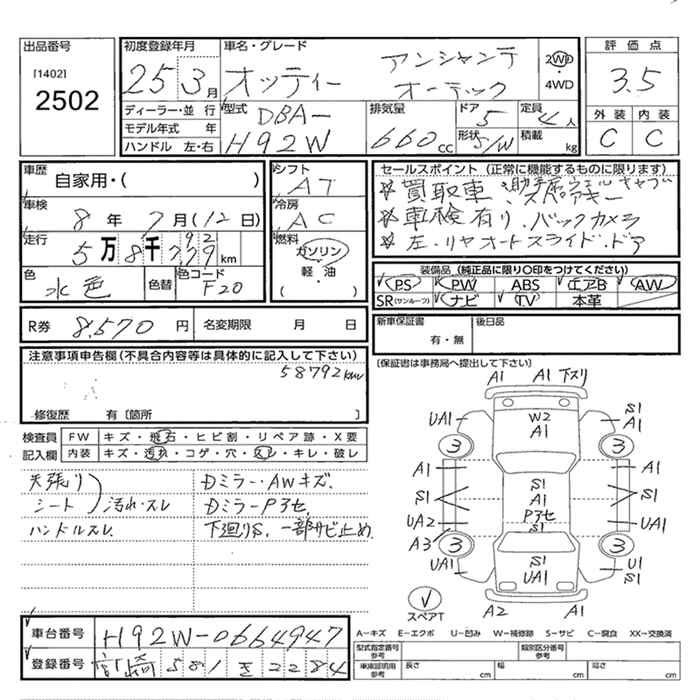 出品番号
[1402]
2502
初度登録年月
25 3月
車名・グレード
オッティー
アンシャンテ
オーテック
2WD
4WD
評価点
3.5
外装 内装
C C
ディーラー・並行
モデル年式 年
ハンドル 左・右
型式
DBA-
H92W
排気量
660cc
ドア
5
形状
S/W
定員
4人
積載
kg
車歴
自家用・( )
車検
8年7月(12日)
走行
5万8千
km
色
水色
色替
色コード
F20
シフト
AT
冷房
AC
燃料
ガソリン
・
軽・油
( )
セールスポイント (正常に機能するものに限ります)
※買取車
※車検有り、バックカメラ
※左、リヤオートスライド、ドア
装備品 (純正品に限り○印をつけてください)
PS PW ABS エアB AW
SR(サンルーフ) ナビ TV 本革
R券 8,570円
名変期限 月 日
新車保証書
有・無
後日品
(保証書は事務局へ提出して下さい)
注意事項申告欄(不具合内容等は具体的に記入して下さい)
58792km
修復歴 有〔箇所 〕
検査員
記入欄
FW キズ・飛石・ヒビ割・リペア跡・X要
内装 キズ・汚れ・コゲ・穴・スレ・キレ・破レ
天張り
シート
汚れ・スレ
ハンドルスレ
Dミラー・AWキズ.
DミラーPアセ
下廻りS、一部サビ止め
A1 A1 下スリ
UA1
W2
A1
S1
A1
3 3
A1
S1
A1
A1
S1
S1
A1
Pアセ
S1
S1
UA2
UA1
A3
3 3
UA1
S1
UA1
U1
S1
レ
スペアT
A2 A1
車台番号 H92W-0664947
登録番号 宮崎 581 き 2284
A-キズ E-エクボ U-凹み W-補修跡 S-サビ C-腐食 XX-交換済
型式指定番号
参考
類別区分番号
参考
車庫証明用
参考
長さ cm
幅 cm
高さ cm